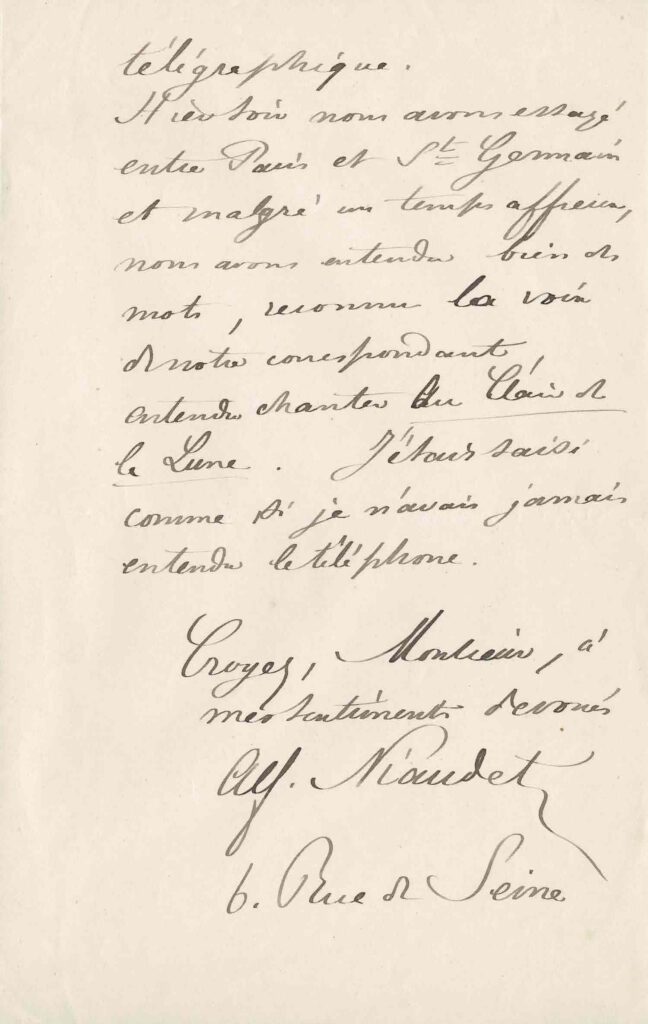 télégraphique.
Hier soir nous avons essayé
entre Paris et St Germain
et malgré un temps affreux,
nous avons entendu bien des
mots, reconnu la voix
de notre correspondant,
entendu chanter Au Clair de
la Lune. J'étais saisi
comme si je n'avais jamais
entendu le téléphone.
Croyez, Monsieur, à
mes sentiments dévoués
Alf. Niaudet
6. Rue de Seine